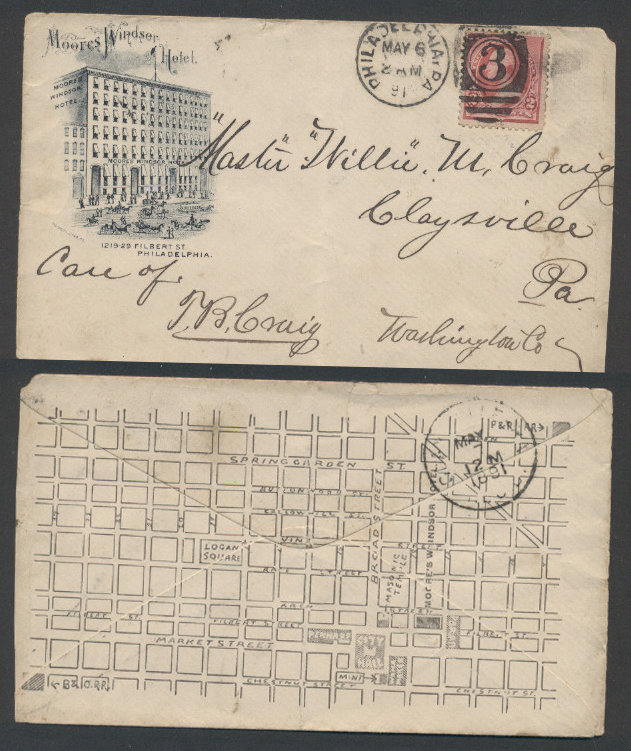 Moore's Windsor
Hotel.
MOORE'S
WINDSOR
HOTEL
MOORE'S WINDSOR HO
1219-29 FILBERT ST.
PHILADELPHIA.
PHILADELPHIA, PA
MAY 6
2 AM
91
3
"Master" "Willie" M. Craig
Claysville
Pa.
Care of
T. B. Craig
Washington Co
P&R RR
MAY
12 M
1891
SPRING GARDEN ST.
BUTTONWOOD ST.
CALLOWHILL ST.
VINE STREET
LOGAN
SQUARE
RACE STREET
BROAD STREET
MASONIC
TEMPLE
MOORE'S WINDSOR
ARCH STREET
FILBERT ST.
FILBERT STREET
FILBERT ST.
MARKET STREET
PENNA RR
CITY
HALL
MINT
B&O.RR.
CHESTNUT STREET
CHESTNUT ST.